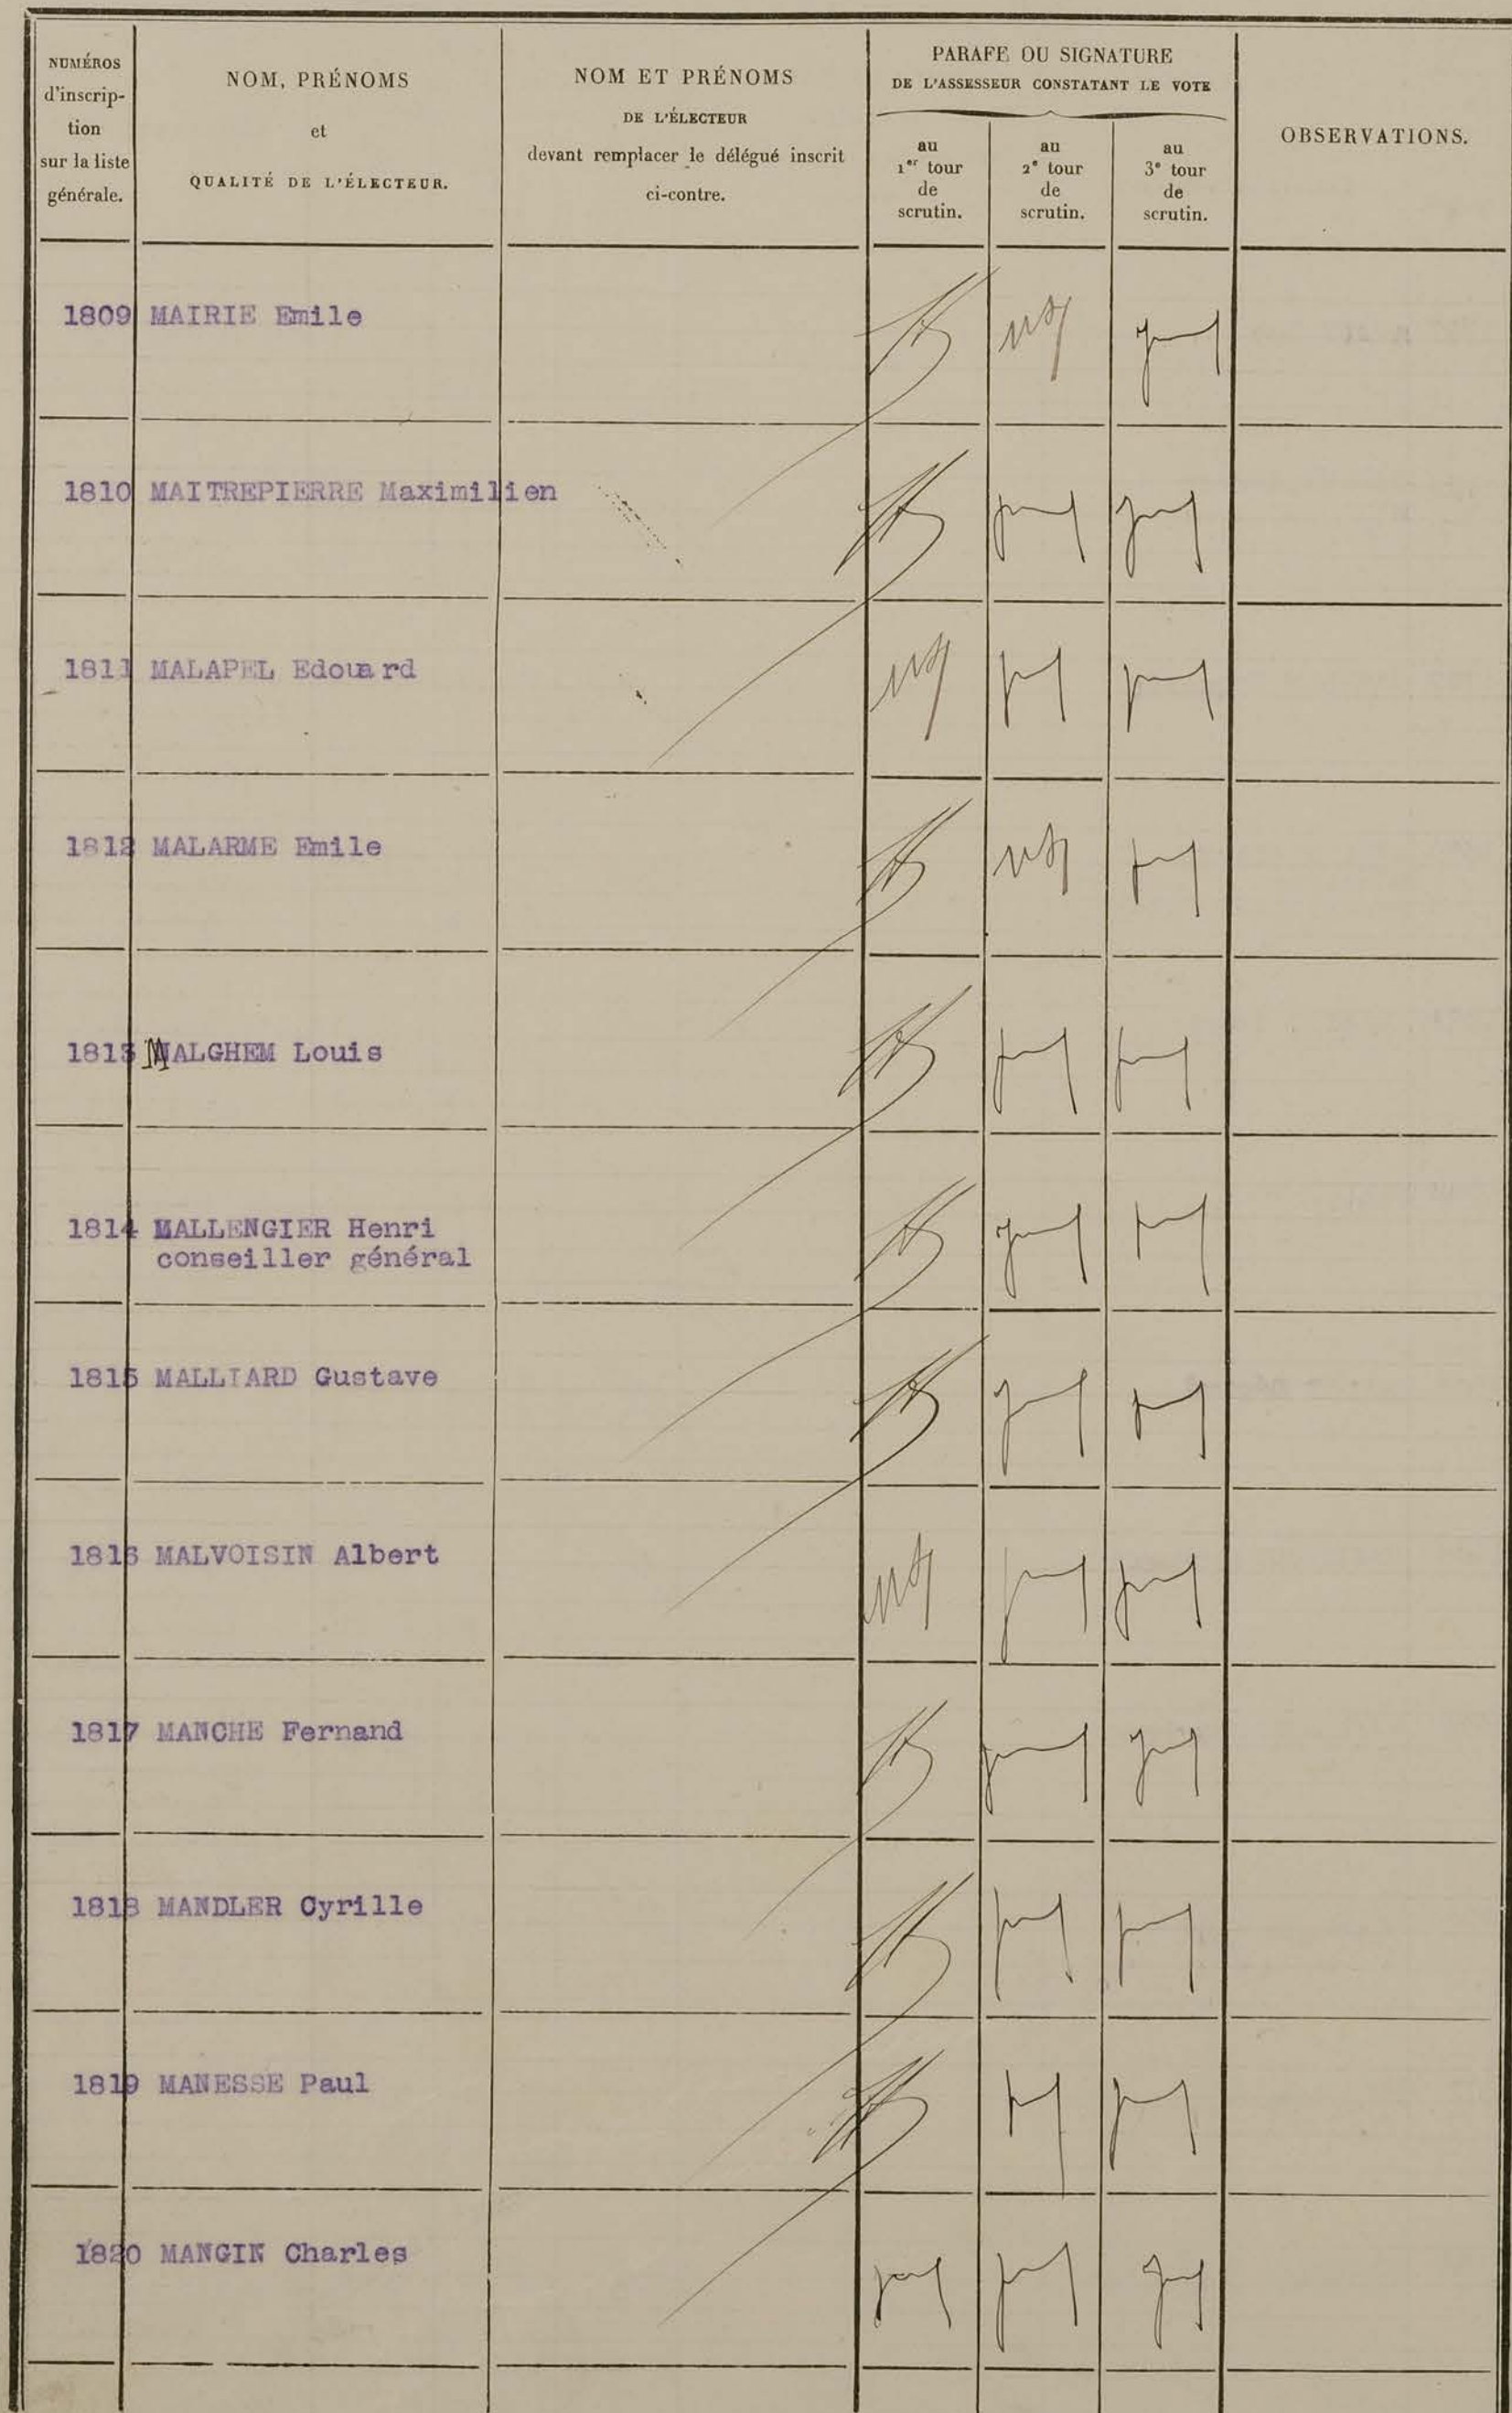 NUMÉROS
d'inscrip-
tion
sur la liste
générale.
NOM, PRÉNOMS
et
QUALITÉ DE L'ÉLECTEUR.
NOM ET PRÉNOMS
DE L'ÉLECTEUR
devant remplacer le délégué inscrit
ci-contre.
PARAFE OU SIGNATURE
DE L'ASSESSEUR CONSTATANT LE VOTE
au
1er tour
de
scrutin.
au
2e tour
de
scrutin.
au
3e tour
de
scrutin.
OBSERVATIONS.
1809 MAIRIE Emile
1810 MAITREPIERRE Maximilien
1811 MALAPEL Edouard
1812 MALARME Emile
1813 MALGHEM Louis
1814 MALLENGIER Henri
conseiller général
1815 MALLIARD Gustave
1816 MALVOISIN Albert
1817 MANCHE Fernand
1818 MANDLER Cyrille
1819 MANESSE Paul
1820 MANGIN Charles